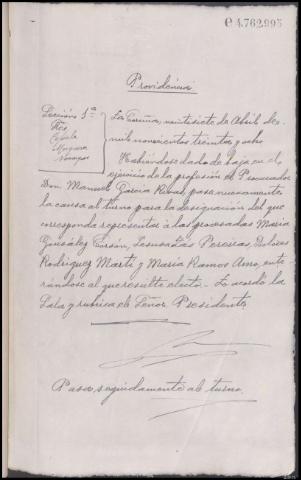 C 4.762.995
Providencia
Sección 1ª
La Coruña, veintisiete de Abril de
mil novecientos treinta y ocho
Habiéndose dado de baja en el
ejercicio de la profesión de Procurador
Don Manuel García Rivas, pase nuevamente
la causa al turno para la designación del que
corresponda representar á las procesadas María
González Corzón, Jesusa Las Pereiras, Dolores
Rodríguez Martí y María Ramos Amo, ente-
rándose al que resulte electo. Lo acordó la
Sala y rubrica el Señor Presidente.
Pasa seguidamente al turno.